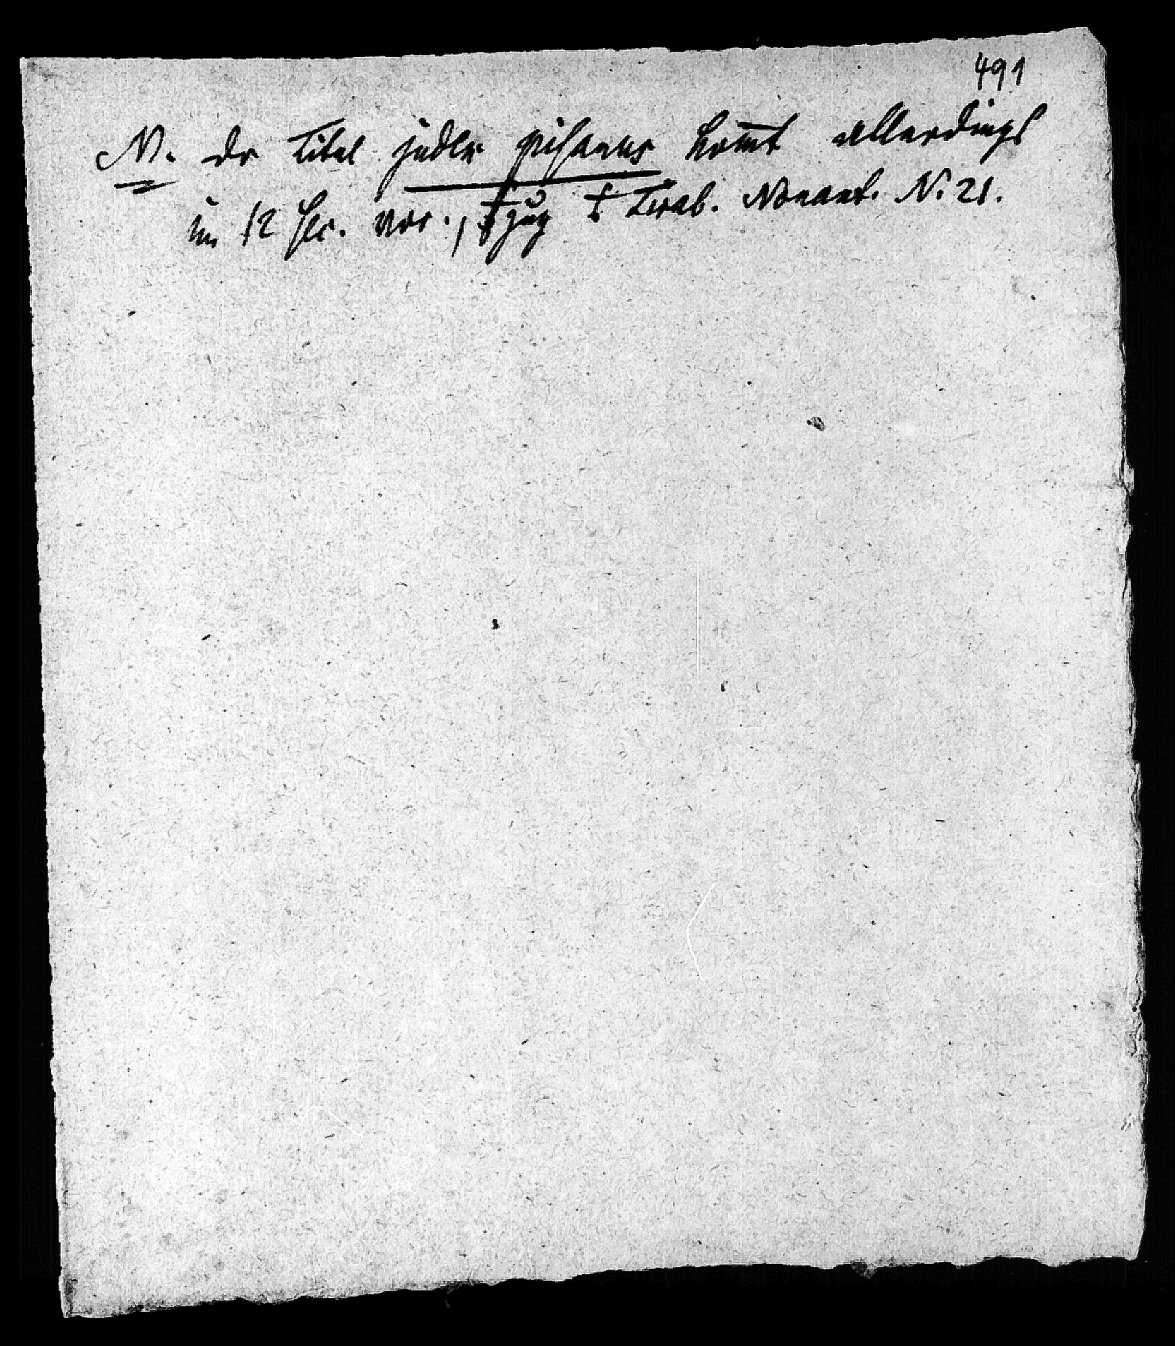 491
N. der Titel judex pisanus kom̅t allerdings
im 12 Sec. vor., Tirab. Nonant. N. 21.